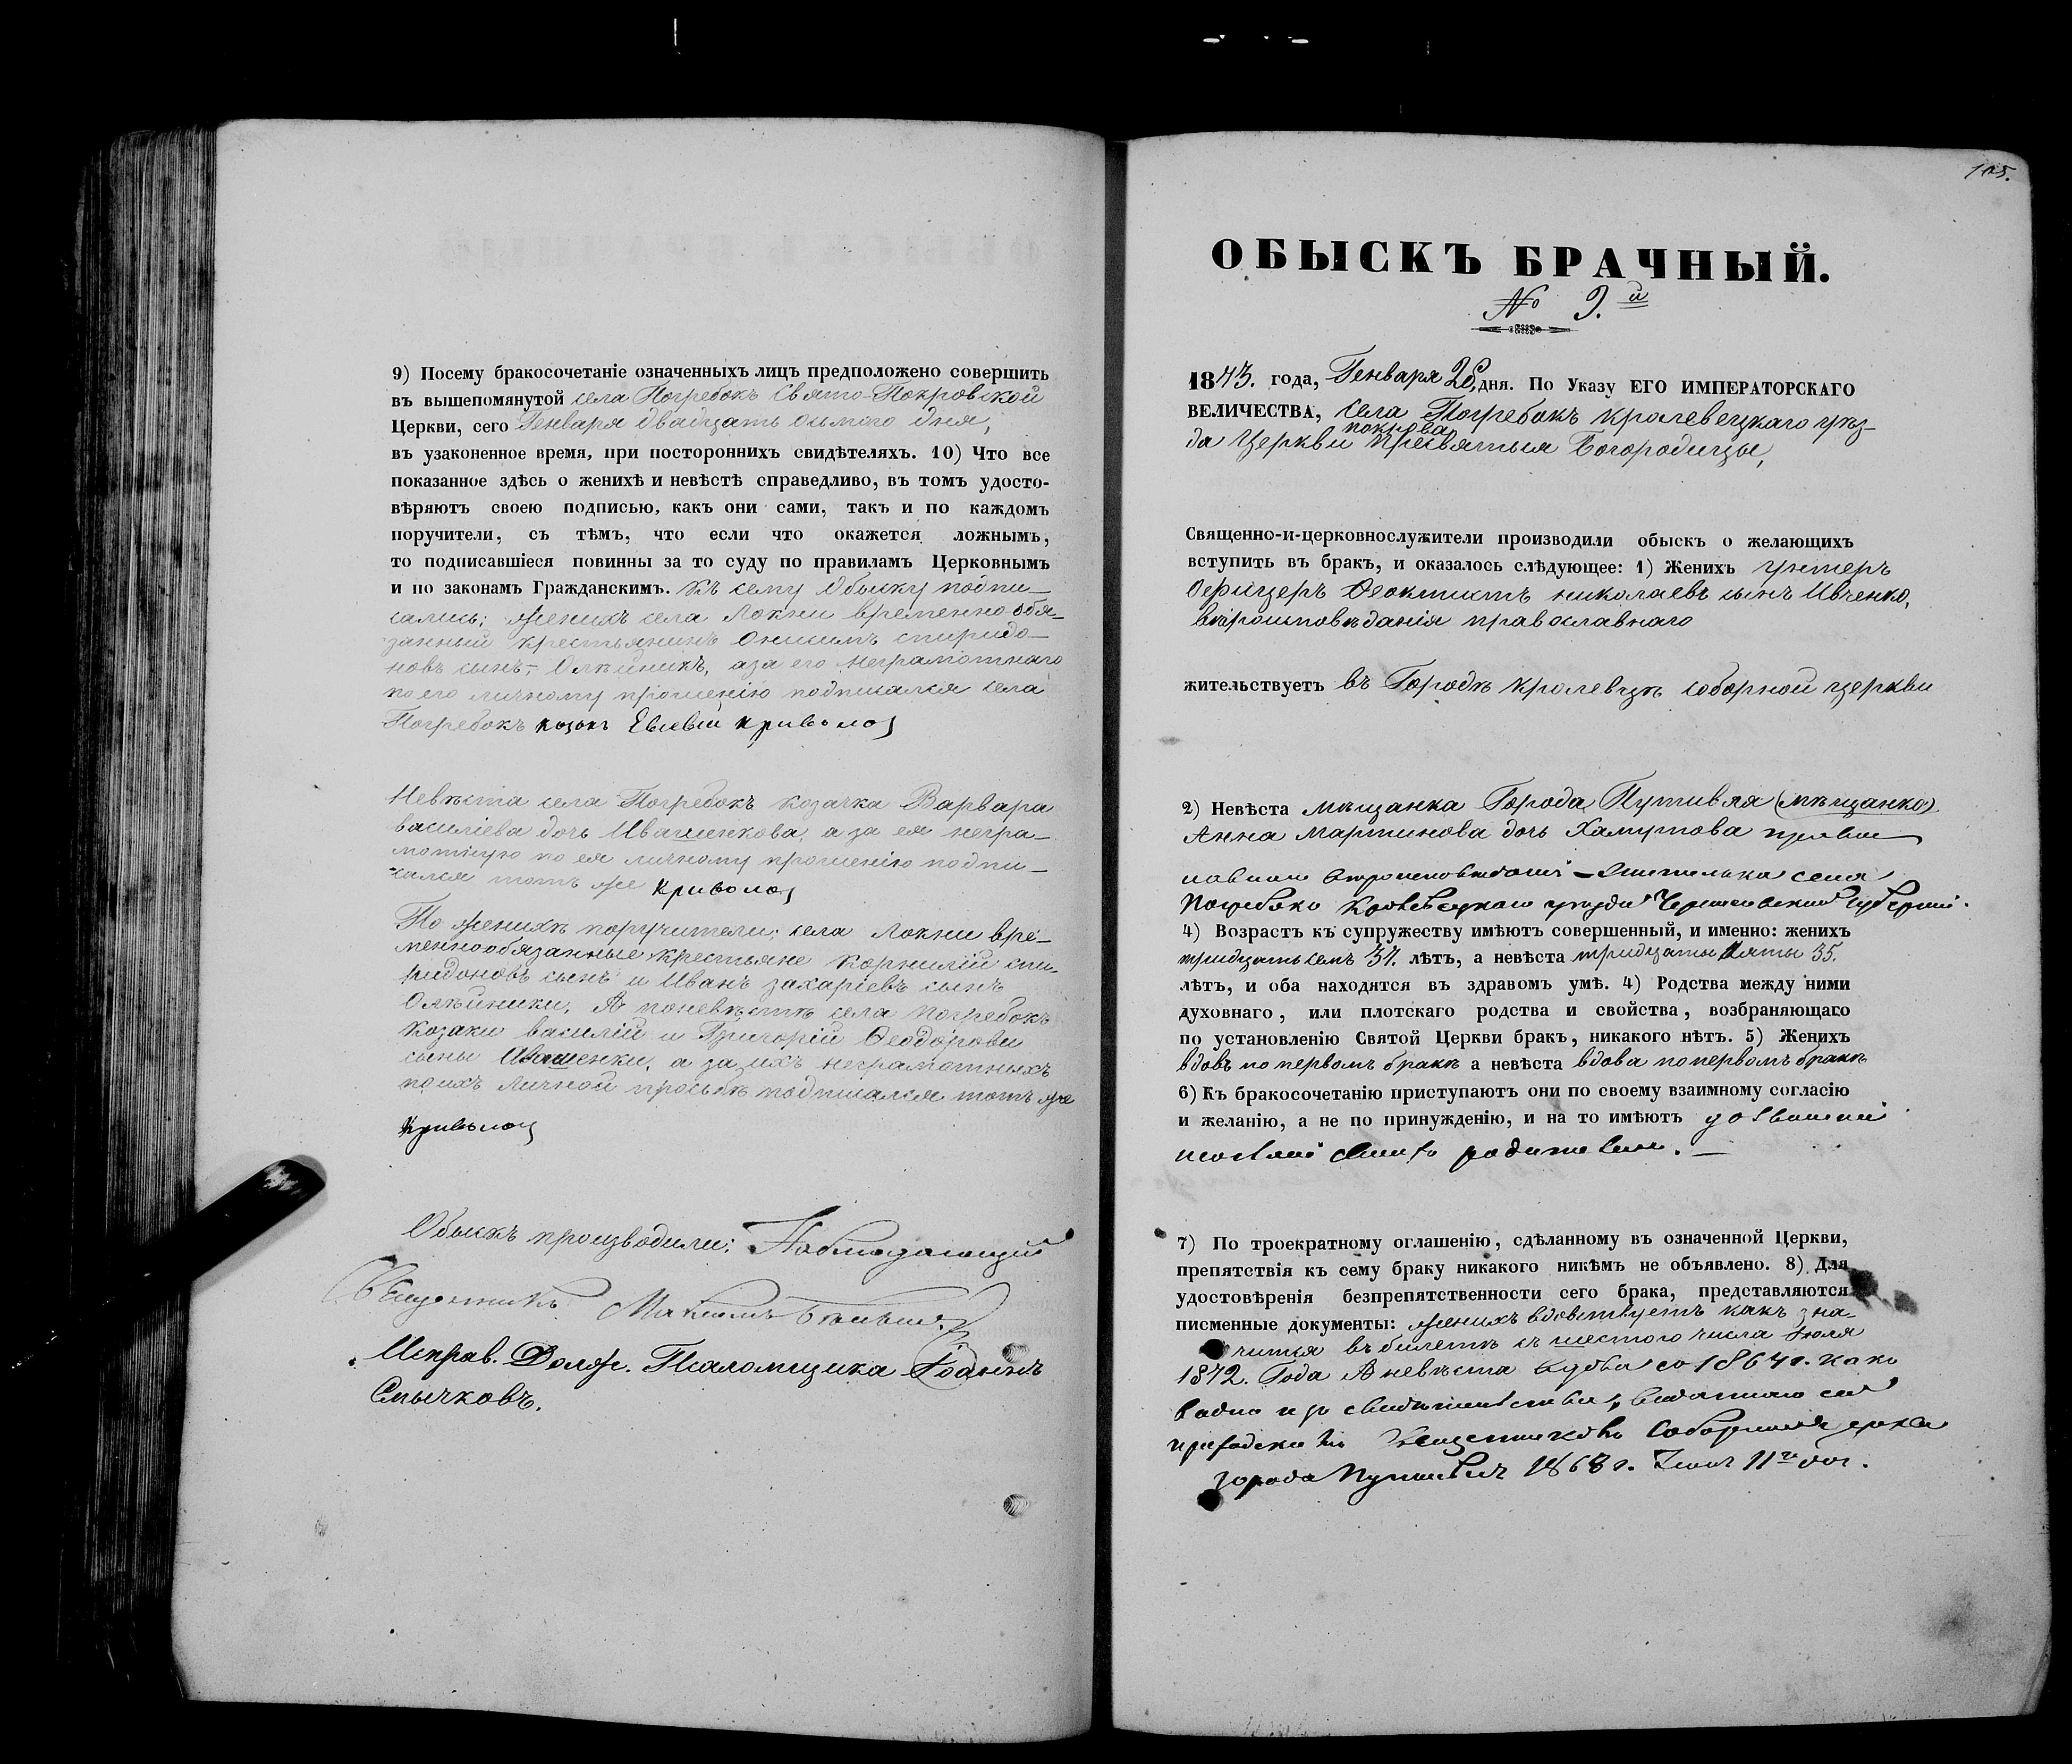 9) Посему бракосочетаніе означенныхъ лицъ предположено совершить
въ вышепомянутой села Погребокъ Свято-Покровской
Церкви, сего Генваря двадцать осьмого дня,
въ узаконенное время, при постороннихъ свидѣтеляхъ. 10) Что все
показанное здѣсь о женихѣ и невѣстѣ справедливо, въ томъ удосто-
вѣряютъ своею подписью, какъ они сами, такъ и по каждомъ
поручители, съ тѣмъ, что если что окажется ложнымъ,
то подписавшіеся повинны за то суду по правиламъ Церковнымъ
и по законамъ Гражданскимъ. Къ сему Обыску подпи-
сались: женихъ села Локни временно обя-
занный крестьянинъ Онисимъ спиридо-
новъ сынъ Олѣйникъ, а за его неграмотнаго
по его личному прошенію подписался села
Погребокъ козакъ Евсевій Кривонос
Невѣста села Погребокъ козачка Варвара
василіева дочь Ивашенкова, а за ея негра-
мотную по ея личному прошенію подпи-
сался тотъ же Кривонос
По женихѣ поручители: села Локни вре-
меннообязанные крестьяне Корнилій спи-
ридоновъ сынъ и Иванъ захаріевъ сынъ
Олѣйники, А по невѣстѣ села Погребокъ
козаки василій и Григорій Ѳеодорови
сыны Ивашенки, а за ихъ неграмотныхъ
по ихъ личной просьбѣ подписался тотъ же
Кривонос
Обыскъ производили: Наблюдающій
Священникъ Максимъ
Исправ. Долж. Псаломщика Іоаннъ
Смычковъ.
105.
ОБЫСКЪ БРАЧНЫЙ.
№ 9.й
1873. года, Генваря 28, дня. По Указу ЕГО ИМПЕРАТОРСКАГО
ВЕЛИЧЕСТВА, села Погребокъ кролевецкаго уѣз-
покрова
да Церкви пресвятыя Богородицы,
Священно-и-церковнослужители производили обыскъ о желающихъ
вступить въ бракъ, и оказалось слѣдующее: 1) Женихъ унтеръ
Офицеръ Ѳеоктистъ николаевъ сынъ Ивченко,
вѣроисповѣданія православнаго
жительствуетъ въ Городѣ Кролевцѣ соборной церкви
2) Невѣста мѣщанка Города Путивля (мѣщанка)
Анна Мартинова дочь Хамутова
села
Кролевецкаго уѣзда Черниговской Губерніи.
4) Возрастъ къ супружеству имѣютъ совершенный, и именно: женихъ
тридцать семъ 37. лѣтъ, а невѣста тридцать пять 35.
лѣтъ, и оба находятся въ здравомъ умѣ. 4) Родства между ними
духовнаго, или плотскаго родства и свойства, возбраняющаго
по установленію Святой Церкви бракъ, никакого нѣтъ. 5) Женихъ
вдовъ по первомъ бракѣ а невѣста вдова по первомъ бракѣ
6) Къ бракосочетанію приступаютъ они по своему взаимному согласію
и желанію, а не по принужденію, и на то имѣютъ
7) По троекратному оглашенію, сдѣланному въ означенной Церкви,
препятствія къ сему браку никакого никѣмъ не объявлено. 8) Для
удостовѣренія безпрепятственности сего брака, представляются
письменные документы: женихъ вдовствуетъ какъ зна-
чится въ билетѣ съ шестого числа Іюля
1872. Года А невѣста вдова со 1864 г. какъ
видно изъ свидѣтельства, выданнаго
Священникомъ Соборной
города Путивля 1868 г.